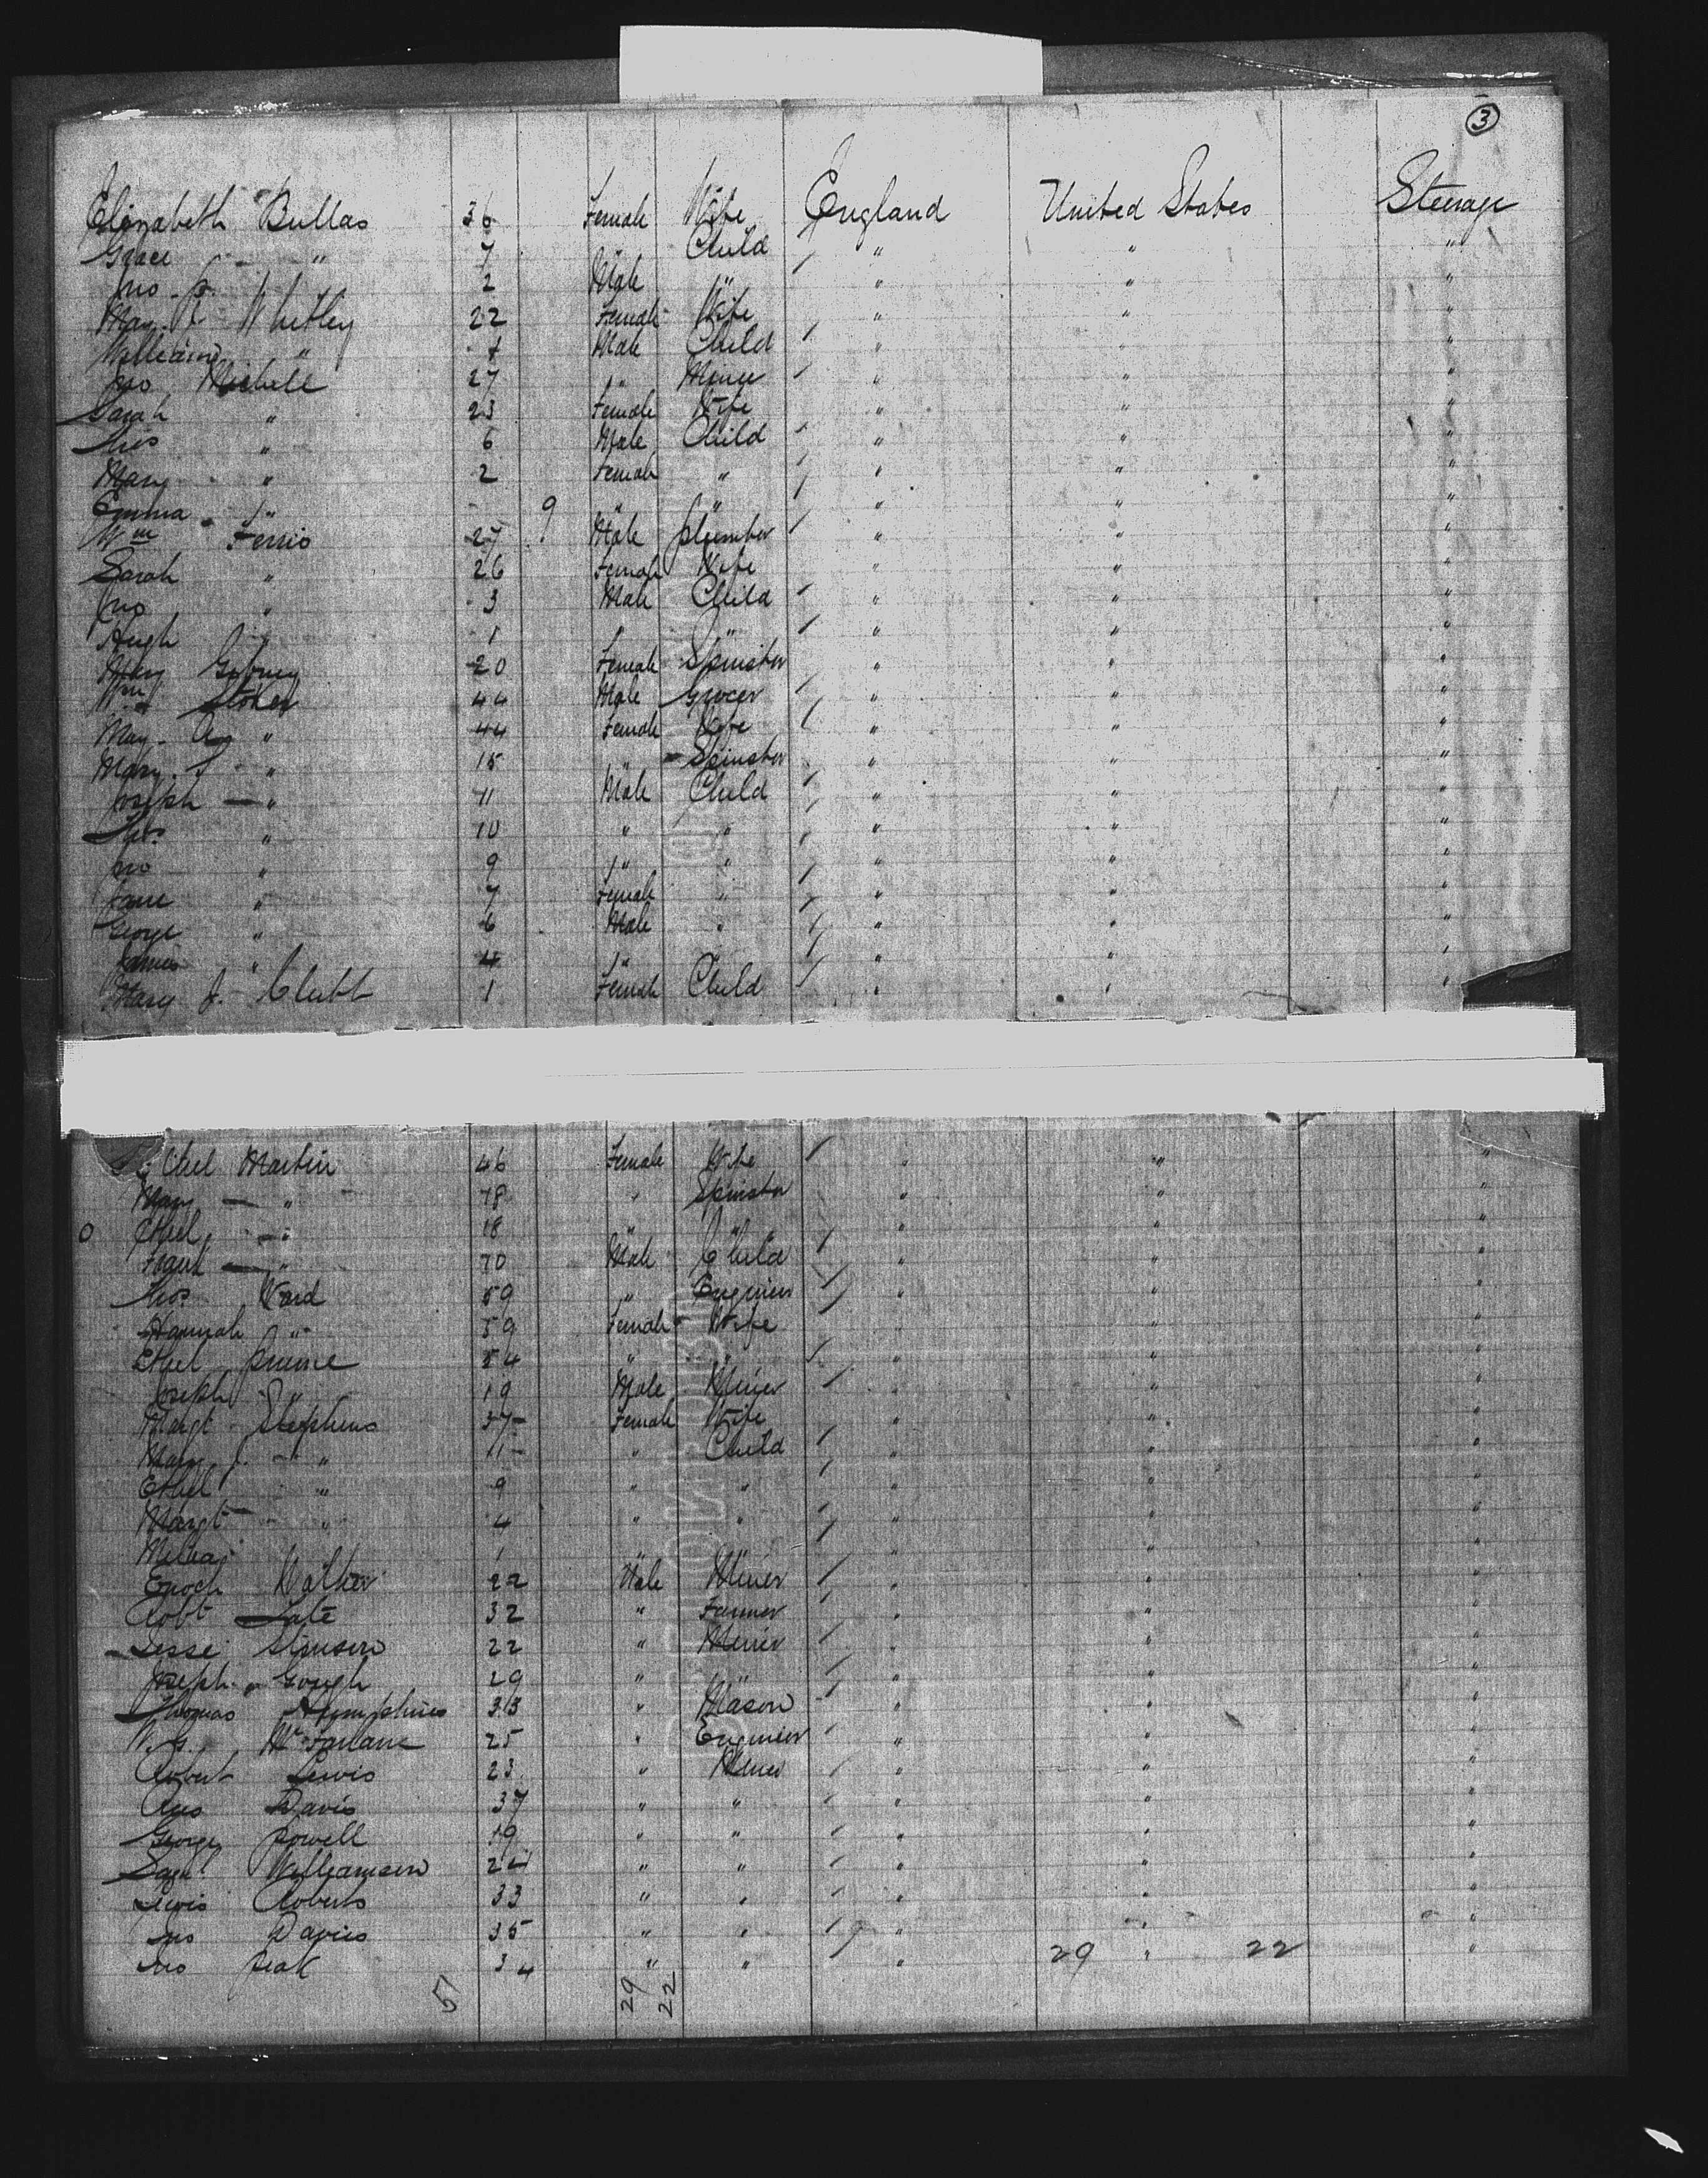 3
Elizabeth Bullas 36 Female Wife England United States Steerage
Grace " 7 " Child " " "
Jno. P. " 2 Male " " " "
Mary A. Whitley 22 Female Wife " " "
William " Male Child " " "
Jno Michell 27 " Miner " " "
Sarah " 23 Female Wife " " "
Thos " 6 Male Child " " "
Mary " 2 Female " " " "
Emma " 9 " " " " "
Wm Ferris 27 Male Plumber " " "
Sarah " 26 Female Wife " " "
Jno " 3 Male Child " " "
Hugh " 1 " " " " "
Mary 20 Female Spinster " " "
Wm Stoker 44 Male Grocer " " "
Mary A " 44 Female Wife " " "
Mary " 15 " Spinster " " "
Joseph — " 11 Male Child " " "
Thos. " 10 " " " " "
Jno " 9 " " " " "
Jane " 7 Female " " " "
George " 6 Male " " " "
James " 4 " " " "
Mary J. Clubb 1 Female Child " " "
Martin 46 Female Wife " " "
Mary — " 18 " Spinster " " "
O Ethel — " 18 " " " " "
Frank — " 10 Male Child " " "
Thos Ward 59 " Engineer " " "
Hannah " 59 Female Wife " " "
Ethel 54 " " " " "
Joseph " 19 Male Miner " " "
Margt Stephens 37 Female Wife " " "
Mary J. — " 11 " Child " " "
Ethel " 9 " " " " "
Margt " 4 " " " " "
1 " " " " "
Enoch Walker 22 Male Miner " " "
Robt Tate 32 " Farmer " " "
Jesse Stimson 22 " Miner " " "
Joseph Gough 29 " " " " "
Thomas Humphries 33 " Mason " " "
W. G. McFarlane 25 " Engineer " " "
Robert Lewis 23 " Miner " " "
Davis 37 " " " " "
George Powell 19 " " " " "
Saml Williamson 24 " " " " "
Lewis Roberts 33 " " " " "
Jno Davies 35 " " " " "
Jno Peak 34 " " " 29 " 22 "
5 29 22